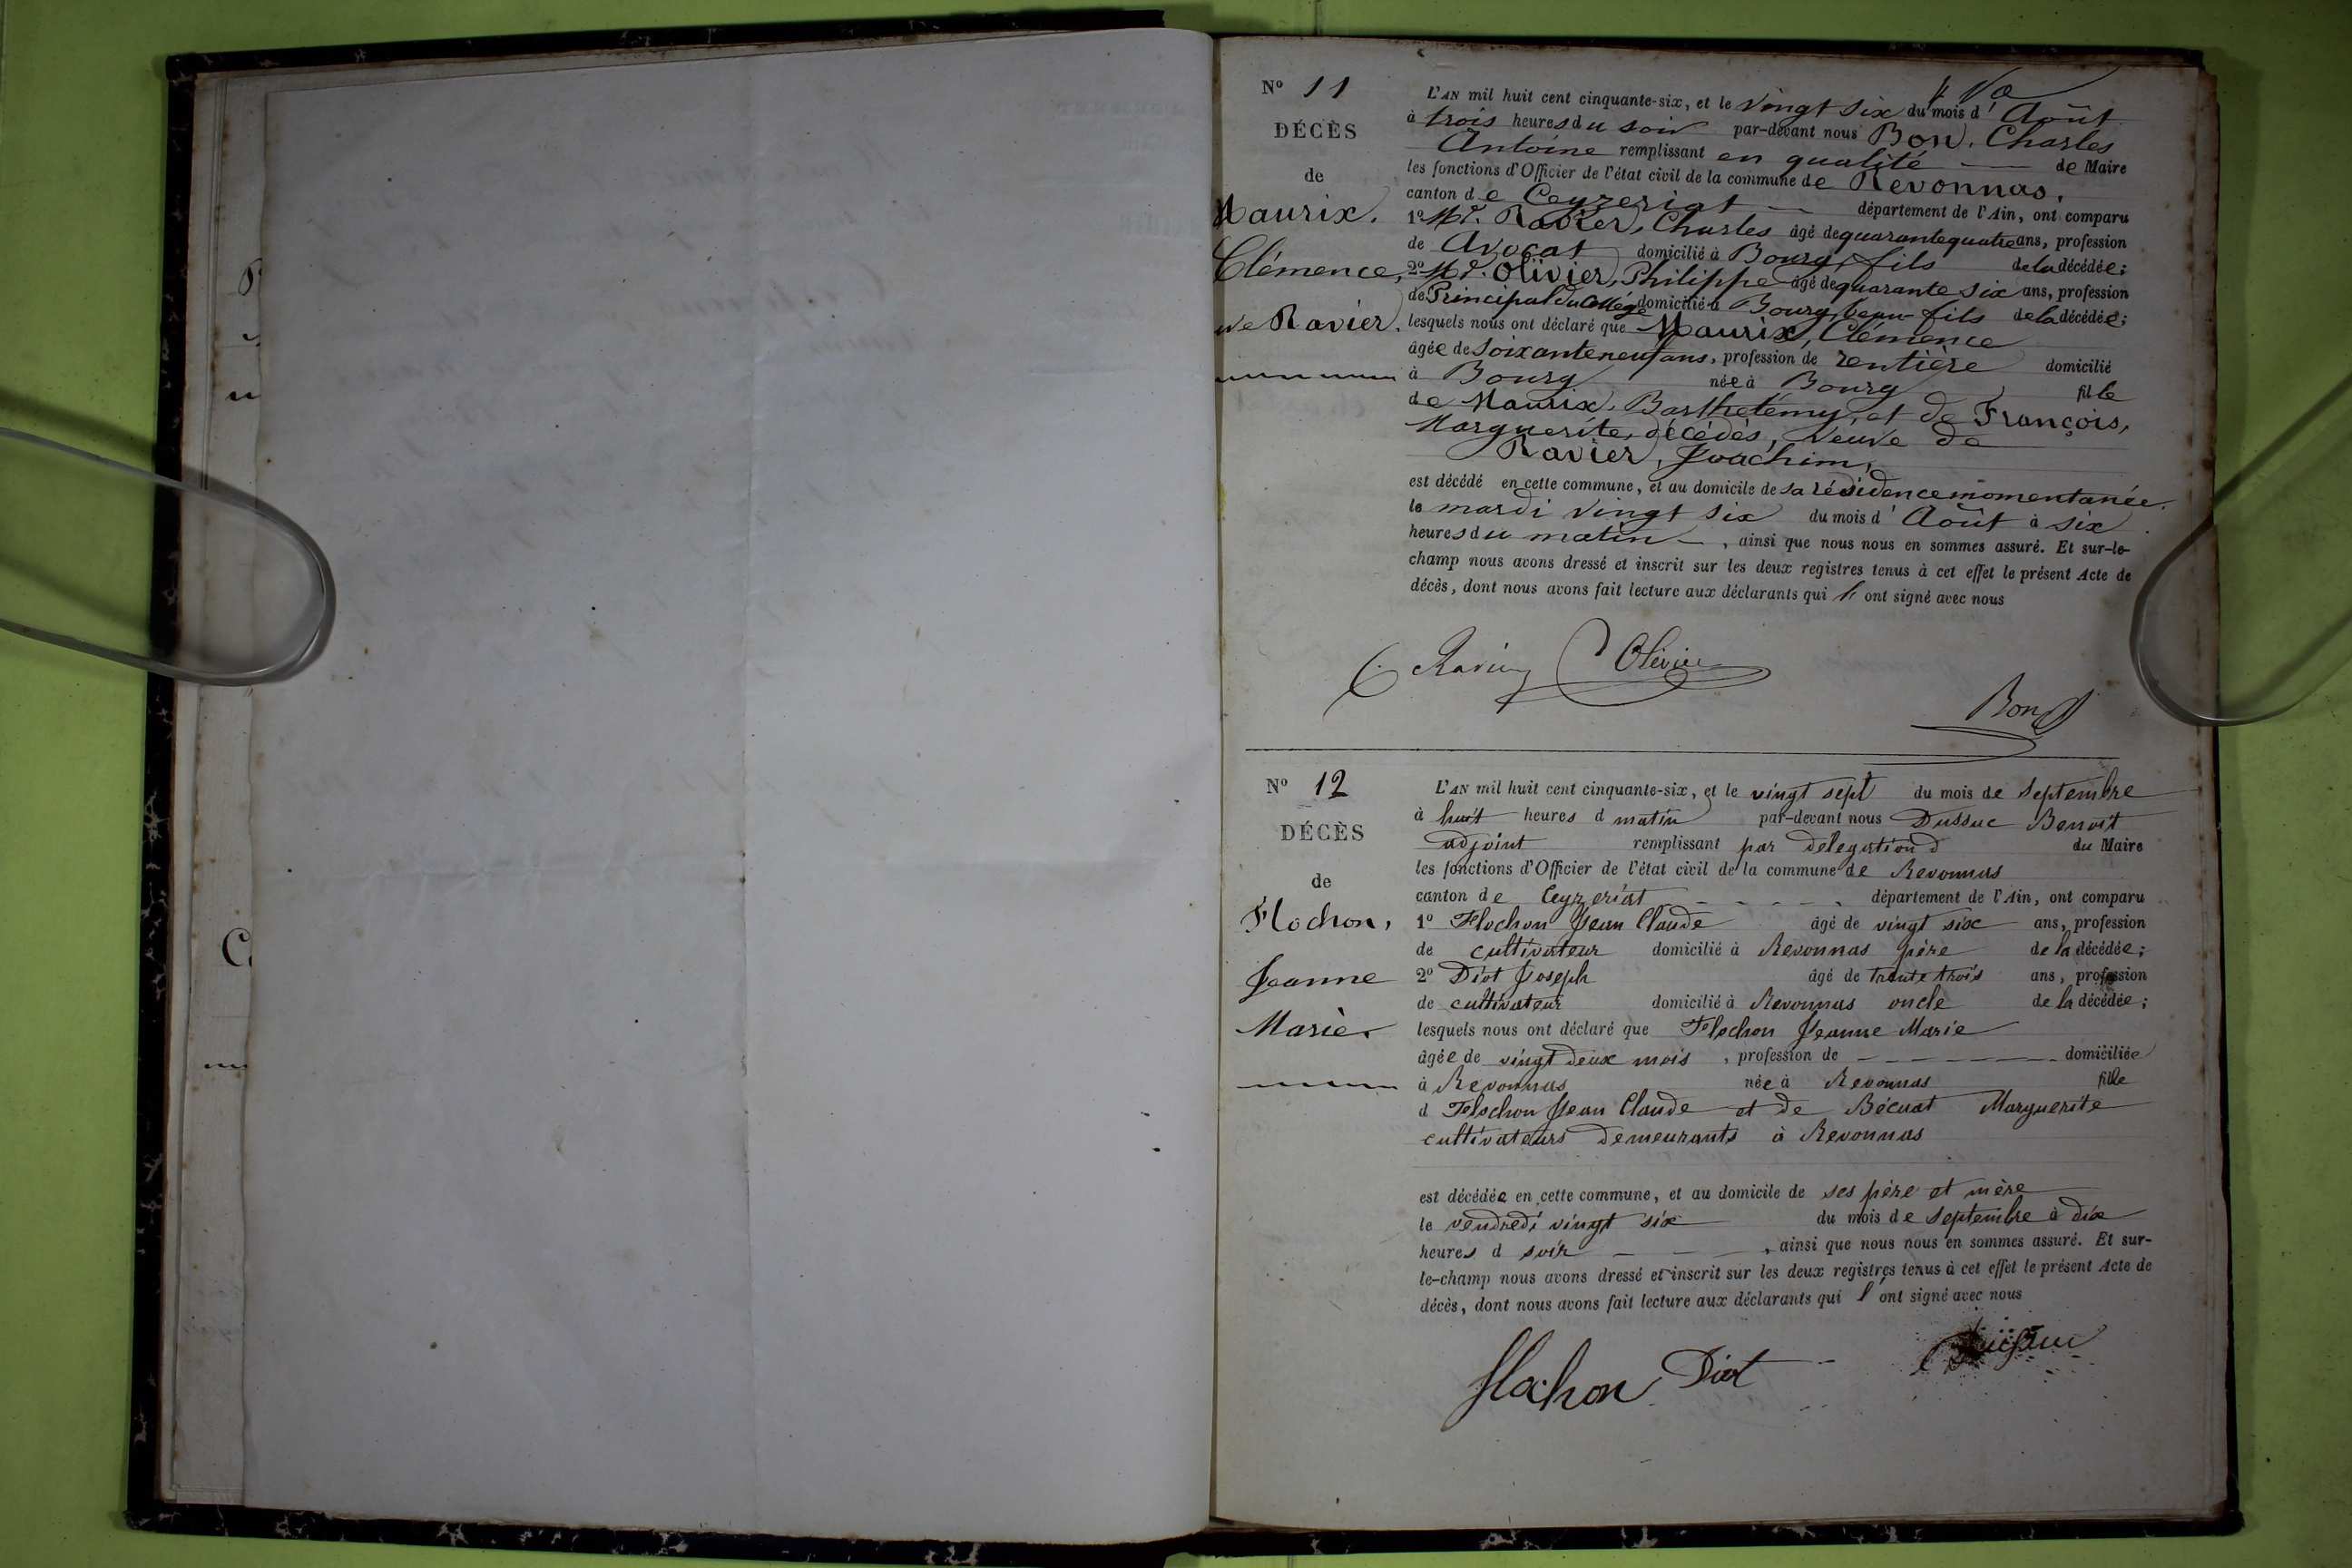 Nº 11
DÉCÈS
de
Maurix.
Clémence,
Ve Ravier.
L'AN mil huit cent cinquante-six, et le vingt six du mois d'Août
à trois heures du soir par-devant nous Bon, Charles
Antoine remplissant en qualité de Maire
les fonctions d'Officier de l'état civil de la commune de Revonnas,
canton de Ceyzeriat département de l'Ain, ont comparu
1º Mr. Ravier, Charles âgé de quarante quatre ans, profession
de Avocat domicilié à Bourg, fils de la décédée;
2º Mr. Olivier, Philippe âgé de quarante six ans, profession
de Principal du Collége domicilié à Bourg, beau-fils de la décédée;
lesquels nous ont déclaré que Maurix, Clémence
âgée de soixante neuf ans, profession de rentière domicilié
à Bourg née à Bourg fille
de Maurix, Barthelémy, et de François,
Marguerite, décédés, veuve de
Ravier, Joachim,
est décédé en cette commune, et au domicile de sa résidence momentanée.
le mardi vingt six du mois d'Août à six
heures du matin, ainsi que nous nous en sommes assuré. Et sur-le-
champ nous avons dressé et inscrit sur les deux registres tenus à cet effet le présent Acte de
décès, dont nous avons fait lecture aux déclarants qui ont signé avec nous
C. Ravier Olivier
Bon
Nº 12
DÉCÈS
de
Flochon,
Jeanne
Marie.
L'AN mil huit cent cinquante-six, et le vingt sept du mois de Septembre
à huit heures d matin par-devant nous Dussuc Benoit
adjoint remplissant par délégation d du Maire
les fonctions d'Officier de l'état civil de la commune de Revonnas
canton de Ceyzeriat département de l'Ain, ont comparu
1º Flochon Jean Claude âgé de vingt six ans, profession
de cultivateur domicilié à Revonnas père de la décédée;
2º Diot Joseph âgé de trente trois ans, profession
de cultivateur domicilié à Revonnas oncle de la décédée;
lesquels nous ont déclaré que Flochon Jeanne Marie
âgée de vingt deux mois, profession de domiciliée
à Revonnas née à Revonnas fille
d Flochon Jean Claude et de Bécuat Marguerite
cultivateurs demeurants à Revonnas
est décédée en cette commune, et au domicile de ses père et mère
le vendredi vingt six du mois de Septembre à dix
heures d soir, ainsi que nous nous en sommes assuré. Et sur-
le-champ nous avons dressé et inscrit sur les deux registres tenus à cet effet le présent Acte de
décès, dont nous avons fait lecture aux déclarants qui l'ont signé avec nous
flochon Diot Dussuc